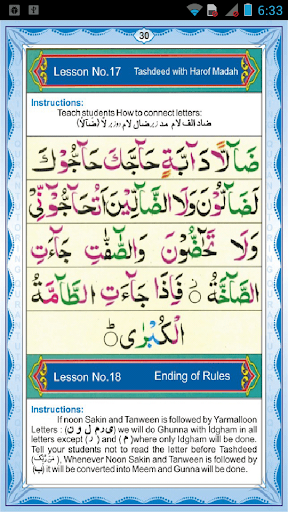 6:33
30
Lesson No.17 Tashdeed with Harof Madah
Instructions:
Teach students How to connect letters:
ضاد الف لام مد زبر ضال لام دوزبر لا (ضَآلًّا)
ضَآلًّا دَآبَّةٍ حَآجَّكَ حَآجُّوْكَ
لَضَآلُّوْنَ وَلَا الضَّآلِّيْنَ اَتُحَآجُّوْنِّىْ
وَلَا تَحٰٓضُّوْنَ وَالصّٰٓفّٰتِ جَآءَتِ
الصَّآخَّةُ فَاِذَا جَآءَتِ الطَّآمَّةُ
الْكُبْرٰى
Lesson No.18 Ending of Rules
Instructions:
If noon Sakin and Tanween is followed by Yarmalloon
Letters : (ی ر م ل و ن) we will do Ghunna with Idgham in all
letters except (ر) and (م) where only Idgham will be done.
Tell your students not to read the letter before Tashdeed
Whenever Noon Sakin and Tanween is followed by
(ب) it will be converted into Meem and Gunna will be done.